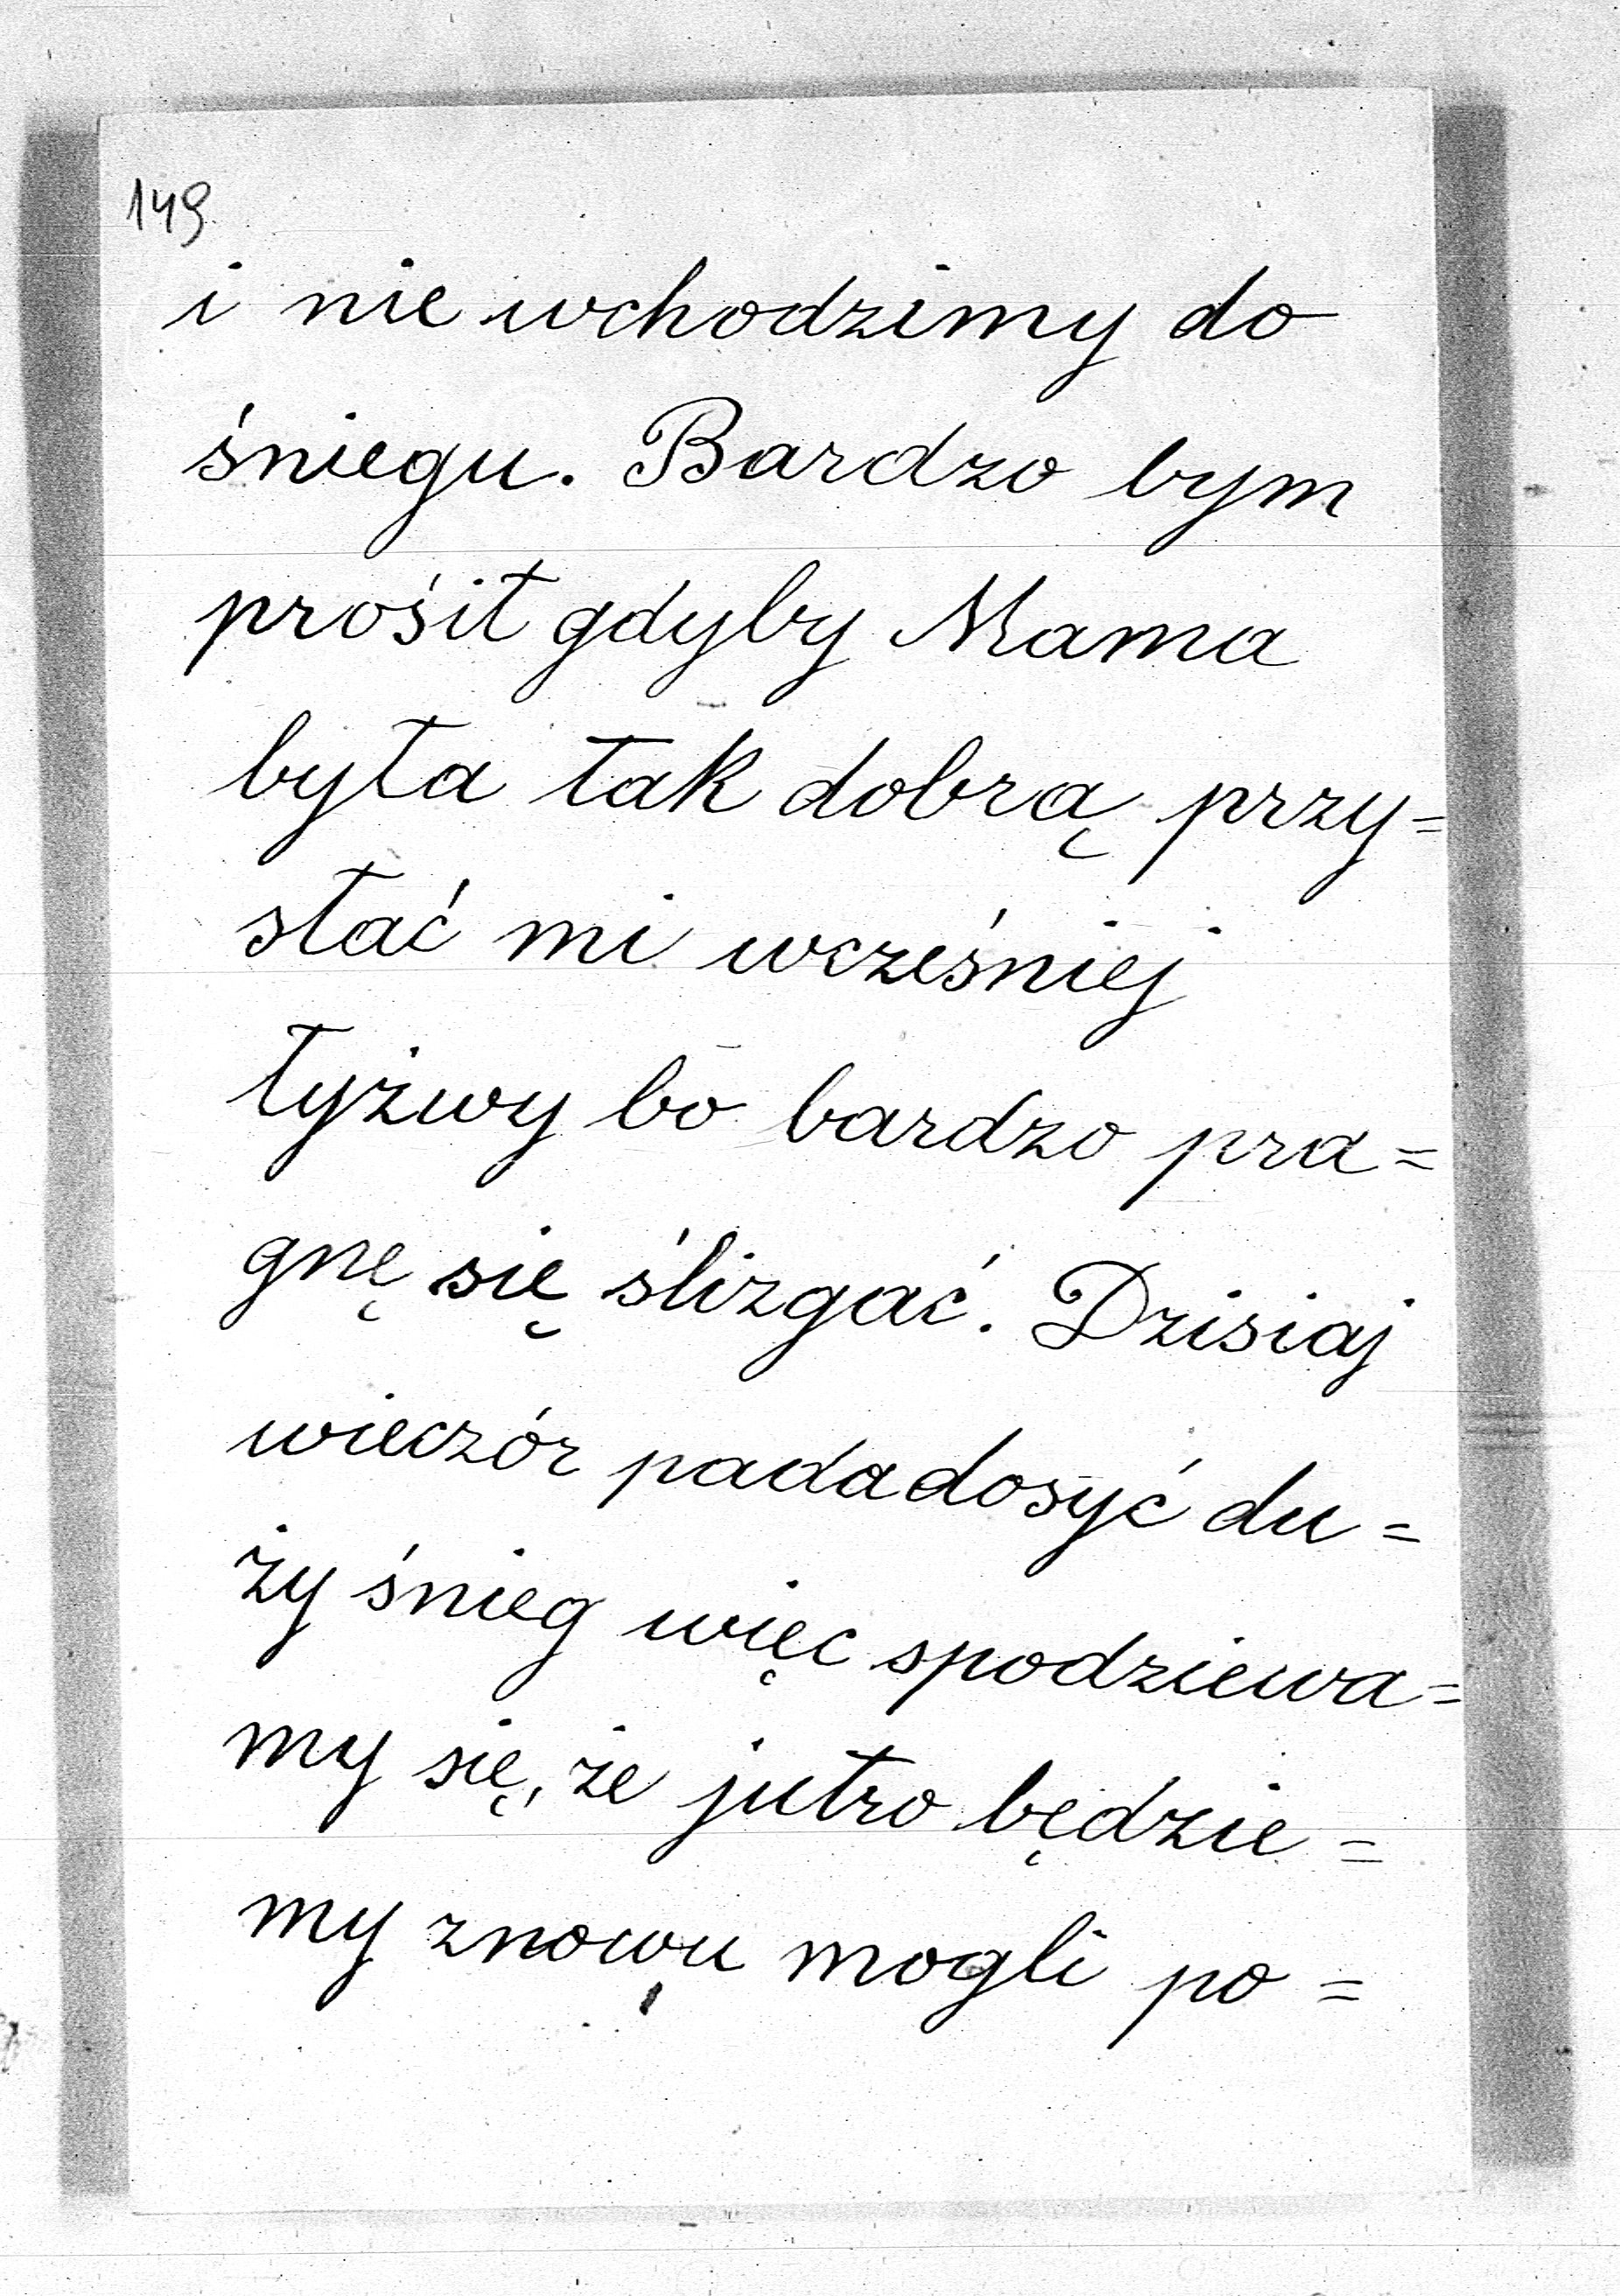 149.
i nie wchodzimy do
śniegu. Bardzo bym
prośił gdyby Mama
była tak dobrą przy=
słać mi wcześniej
łyżwy bo bardzo pra=
gnę się ślizgać. Dzisiaj
wieczór pada dosyć du=
ży śnieg więc spodziewa=
my się, że jutro będzie=
my znowu mogli po=